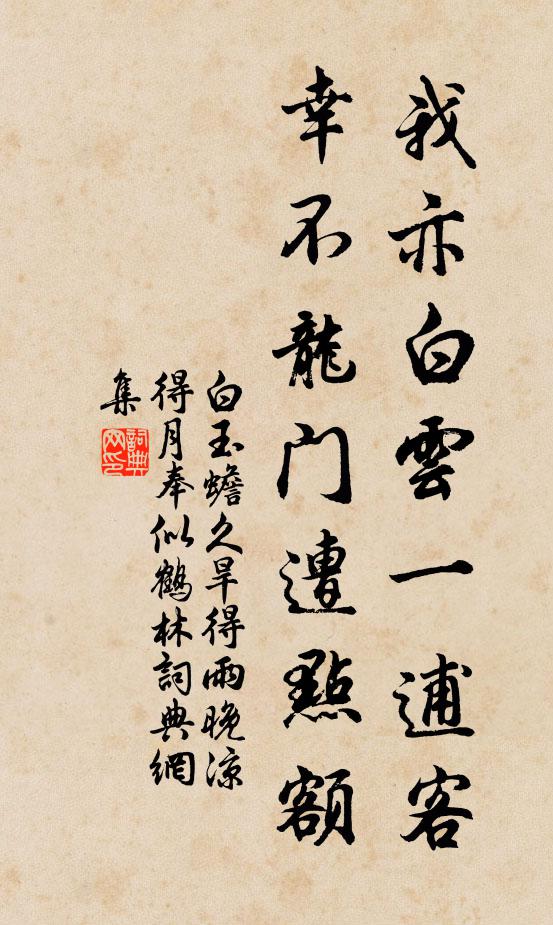 我亦白雲一逋客
幸不龍門遭點額
白玉蟾久旱得雨晚涼
得月奉似鶴林詞典網
集
詞典網印